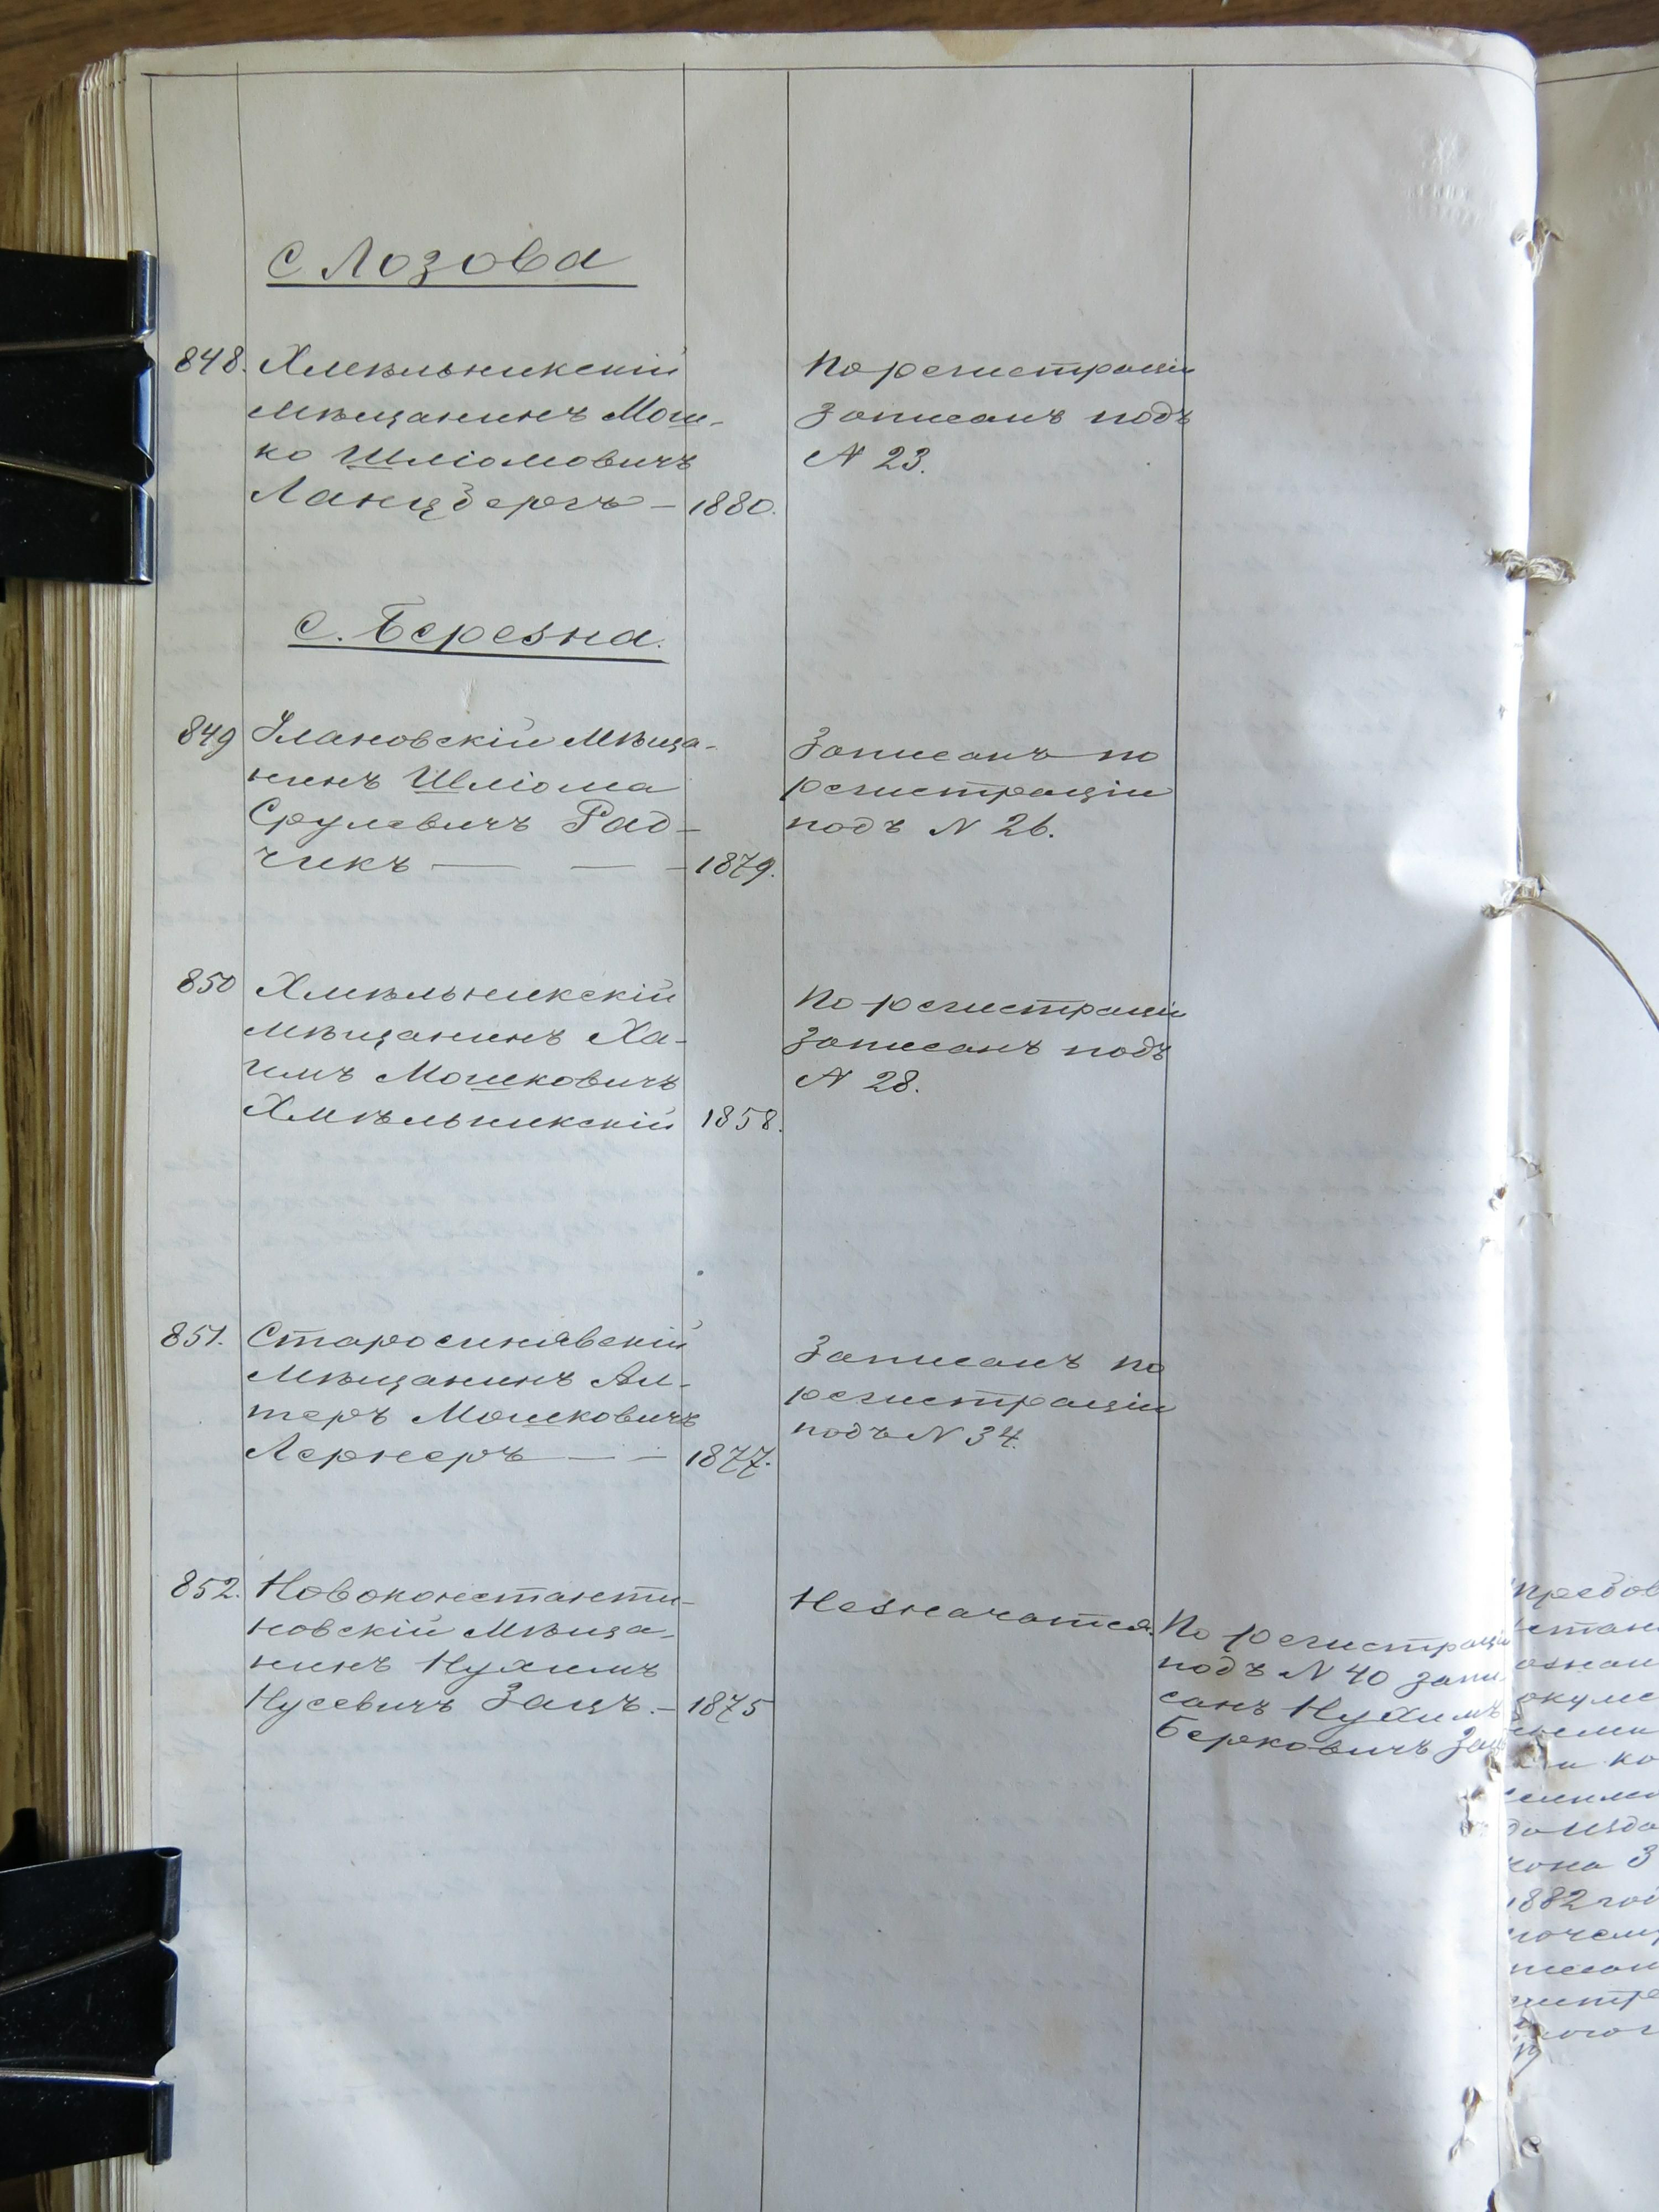 С Лозова
848. Хмѣльникскій
мѣщанинъ Мош-
ко Шліомовичъ
Ланцбергъ — 1880.
По регистраціи
записанъ подъ
N 23.
С. Березна.
849 Улановскій мѣща-
нинъ Шліома
Срулевичъ Рад-
чикъ — — — 1879.
Записанъ по
регистраціи
подъ N 26.
850 Хмѣльникскій
мѣщанинъ Ха-
имъ Мошковичъ
Хмѣльникскій 1858.
По регистраціи
записанъ подъ
N 28.
851. Старосинявскій
мѣщанинъ Ал-
теръ Мошковичъ
Лернеръ — — 1877.
Записанъ по
регистраціи
подъ N 34.
852. Новоконстанти-
новскій мѣща-
нинъ Нухимъ
Нусевичъ Зацъ. — 1875
Незначатся.
По регистраціи
подъ N 40 запи-
санъ Нухимъ
Берковичъ Зацъ
требов
стан
ознак
окуме
и ко
до изда
кона 3
1882 год
почему